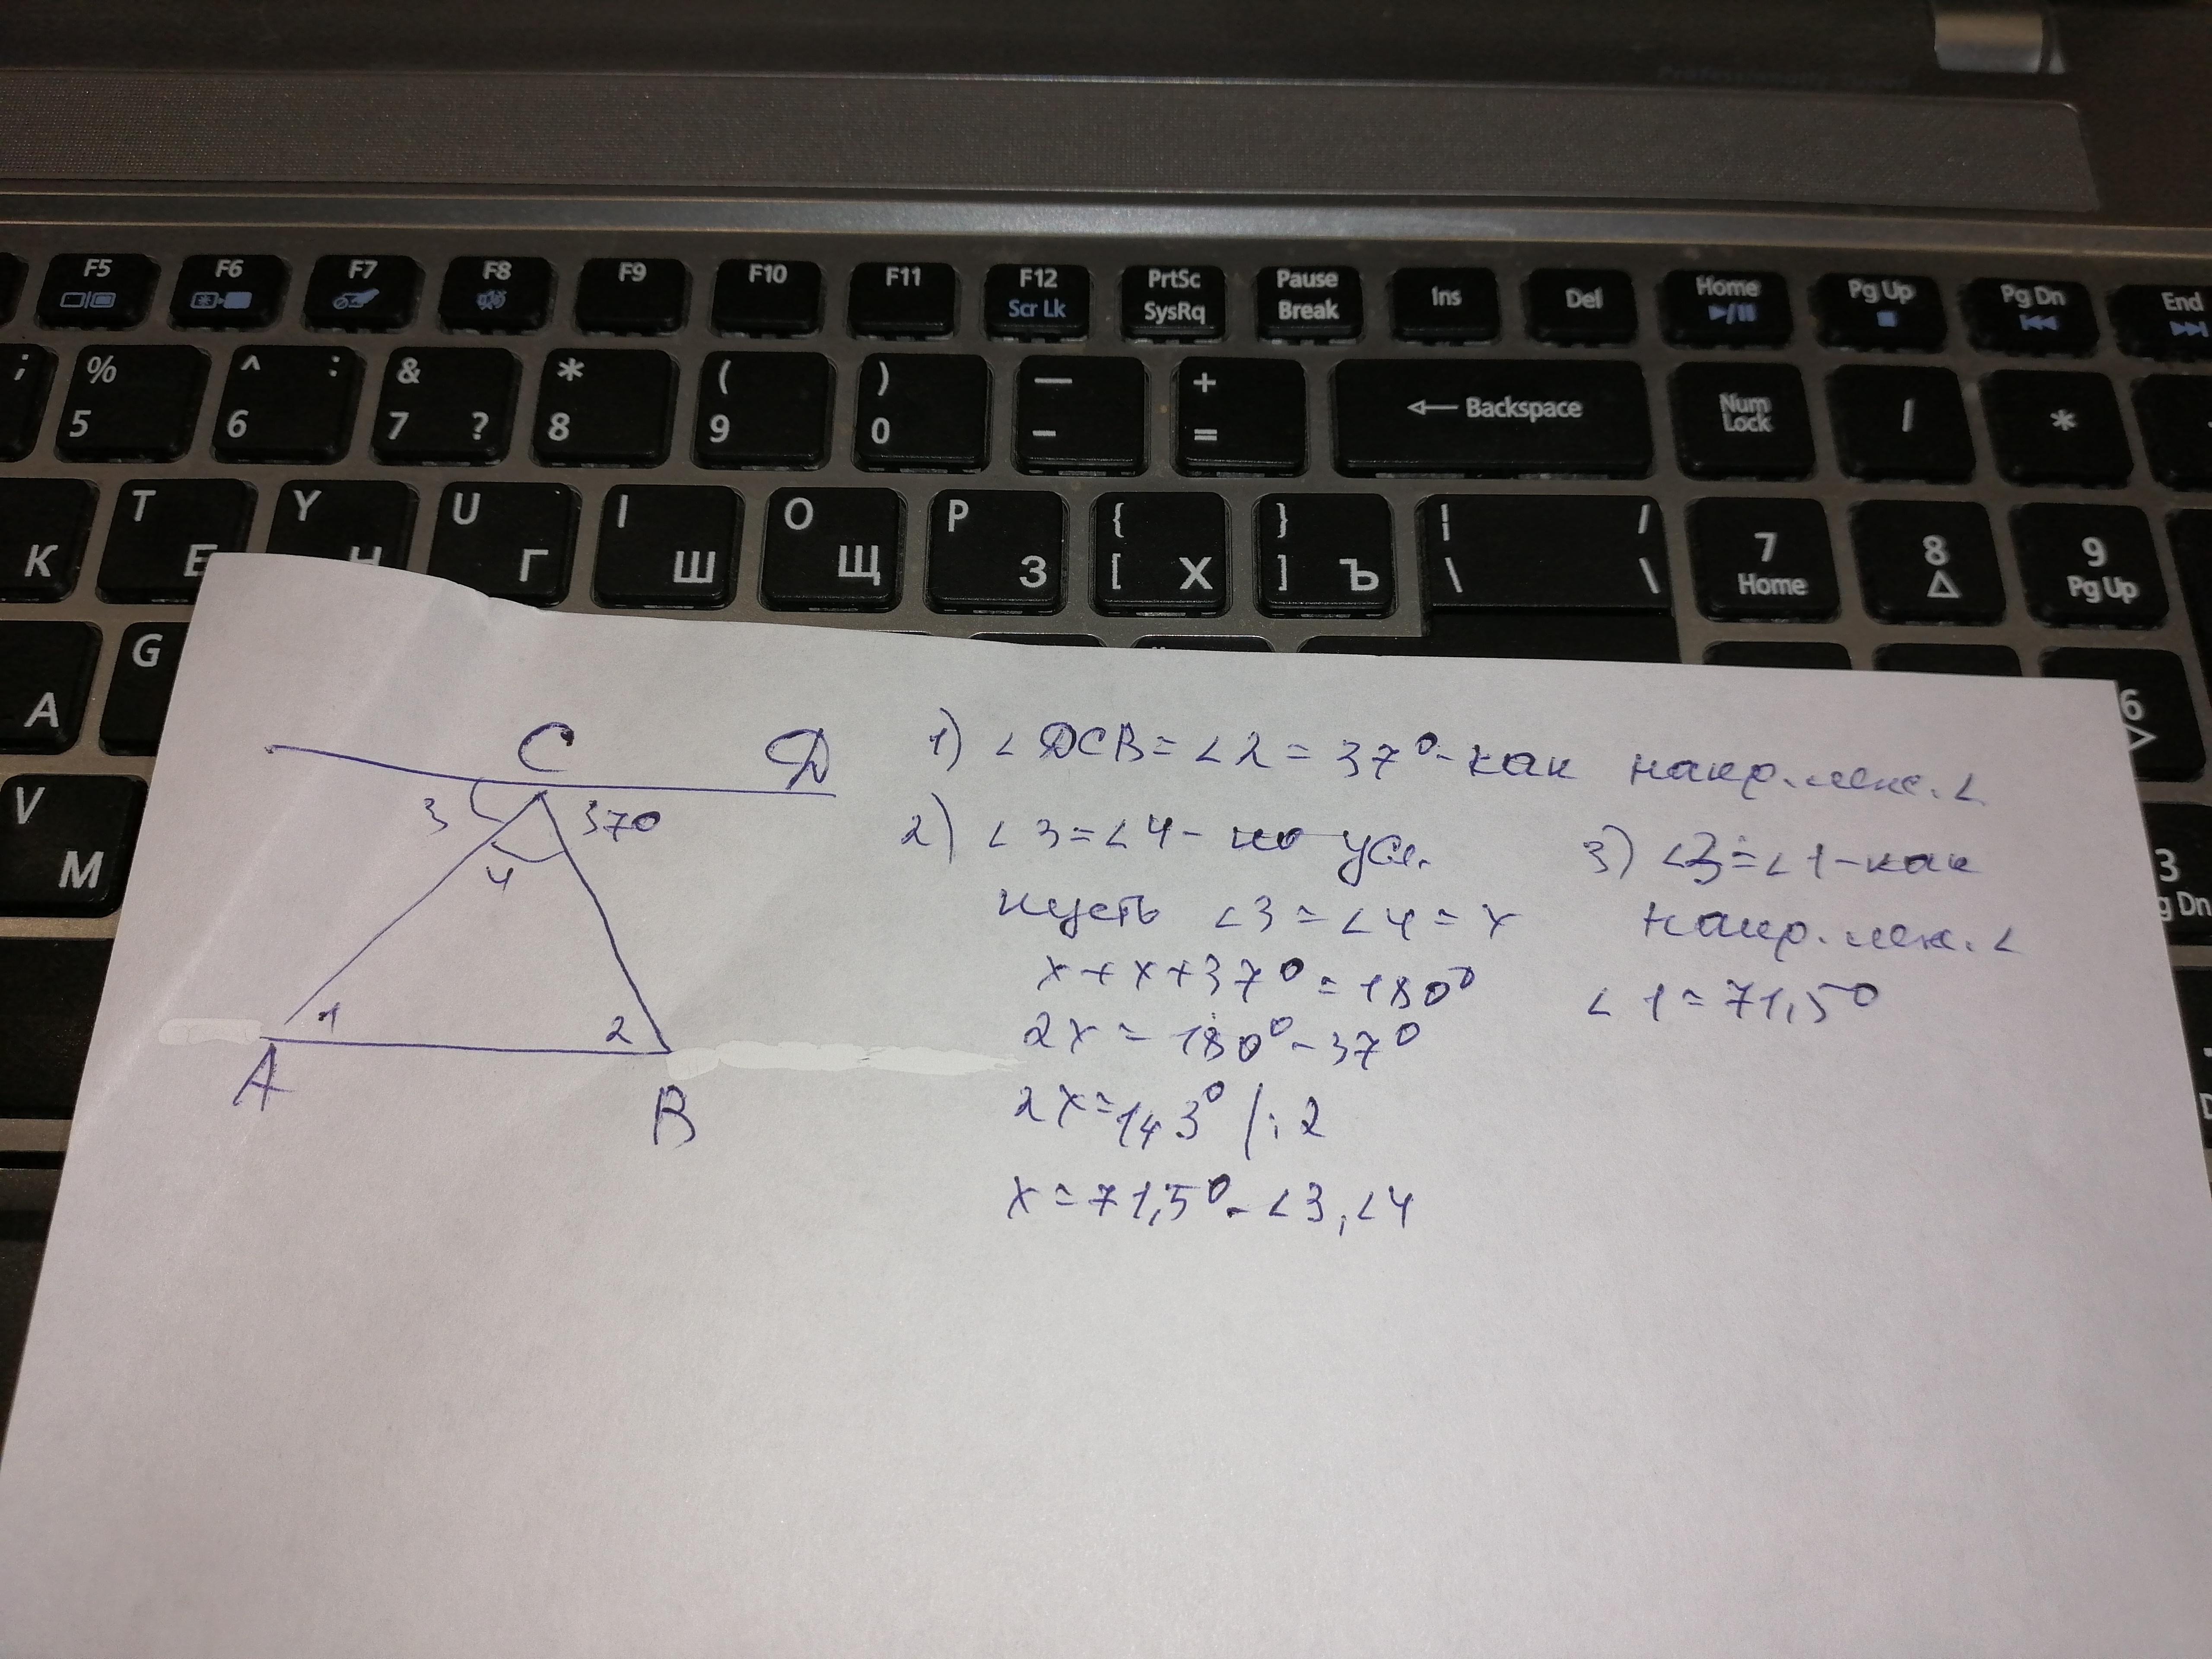 Professionally
F5 F6 F7 F8 F9 F10 F11 F12 Scr Lk PrtSc SysRq Pause Break Ins Del Home Pg Up Pg Dn End
; % 5 ^ : 6 & 7 ? * 8 ( 9 ) 0 — - + = Backspace Num Lock / *
К T Е Y Н U Г I Ш O Щ P З { [ Х } ] Ъ | \ / \ 7 Home 8 9 Pg Up
А G 6
V М 3 Pg Dn
C D
3 37°
4
1 2
A B
1) ∠DCB = ∠2 = 37° - как накр. леж. ∠
2) ∠3 = ∠4 - по усл.
пусть ∠3 = ∠4 = x
x + x + 37° = 180°
2x = 180° - 37°
2x = 143° / : 2
x = 71,5° - ∠3, ∠4
3) ∠3 = ∠1 - как
накр. леж. ∠
∠1 = 71,5°